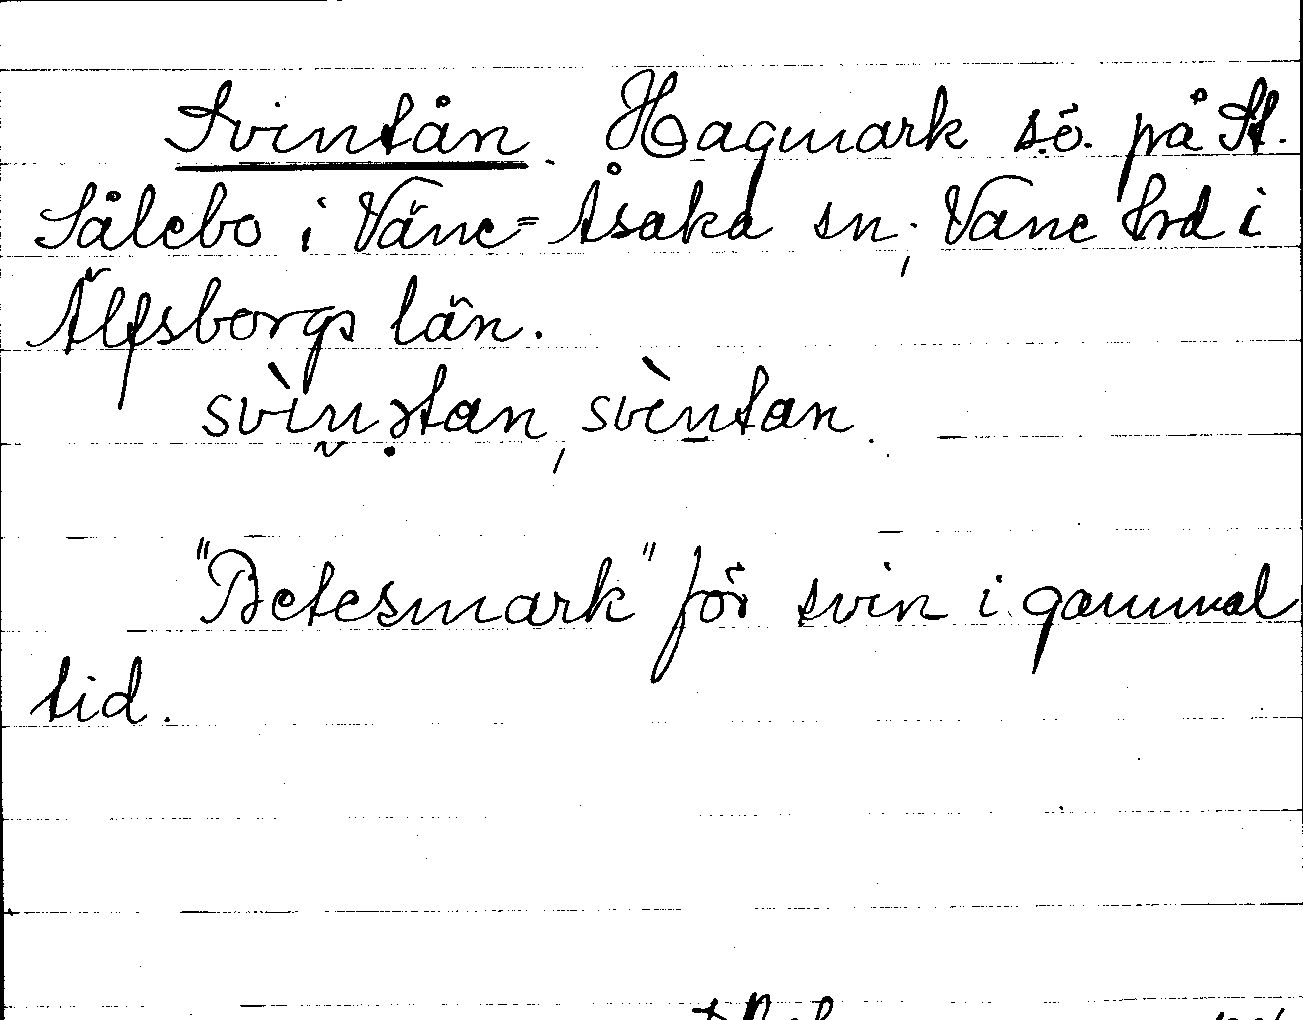 Svintån. Hagmark s.ö. på St.
Sålebo i Väne-Åsaka sn, Vane hrd i
Älfsborgs län.
svìnstan, svìntan.
"Betesmark" för svin i gammal
tid.